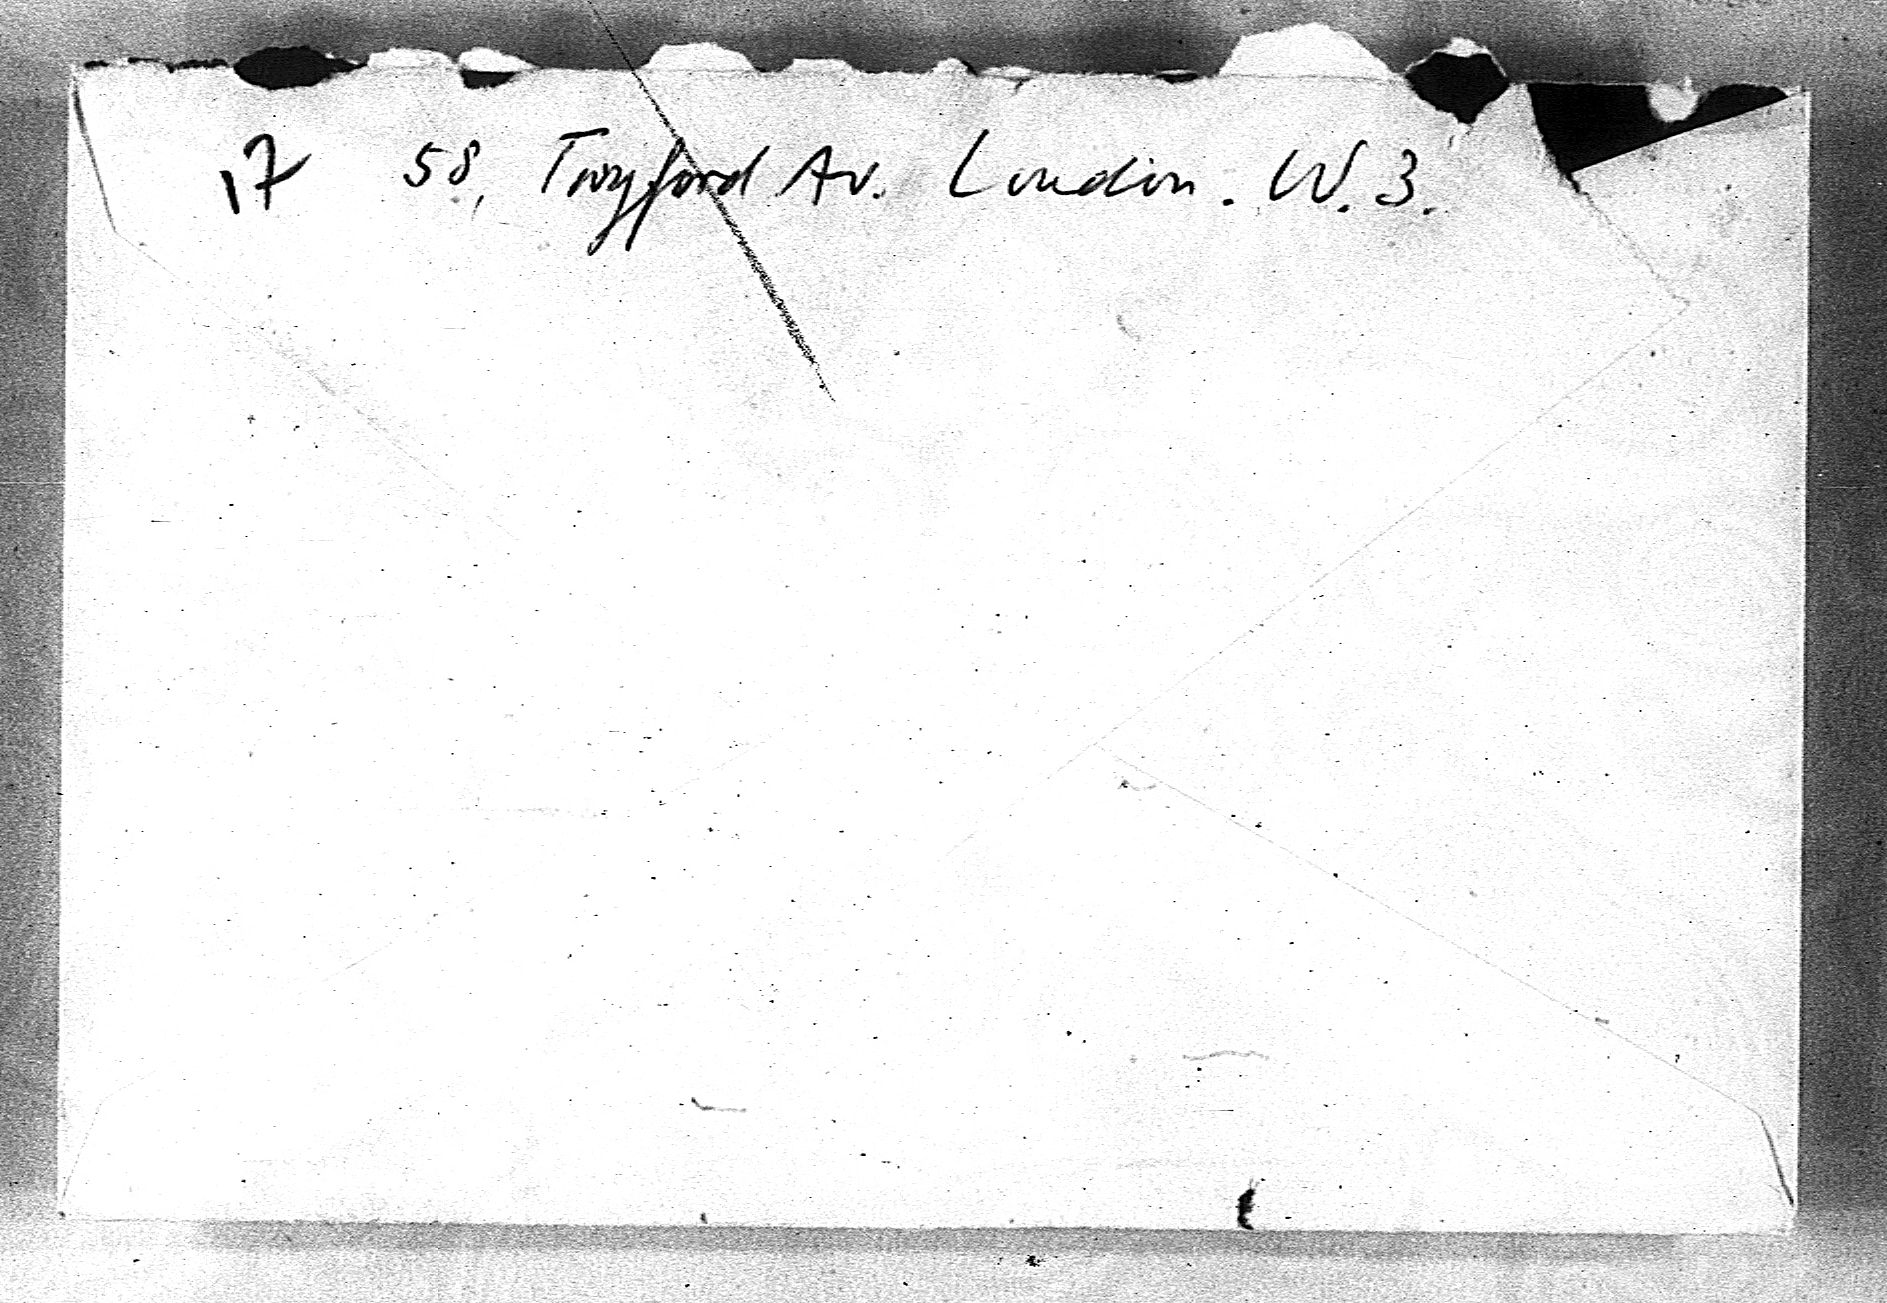 17 58, Twyford Av. London. W.3.